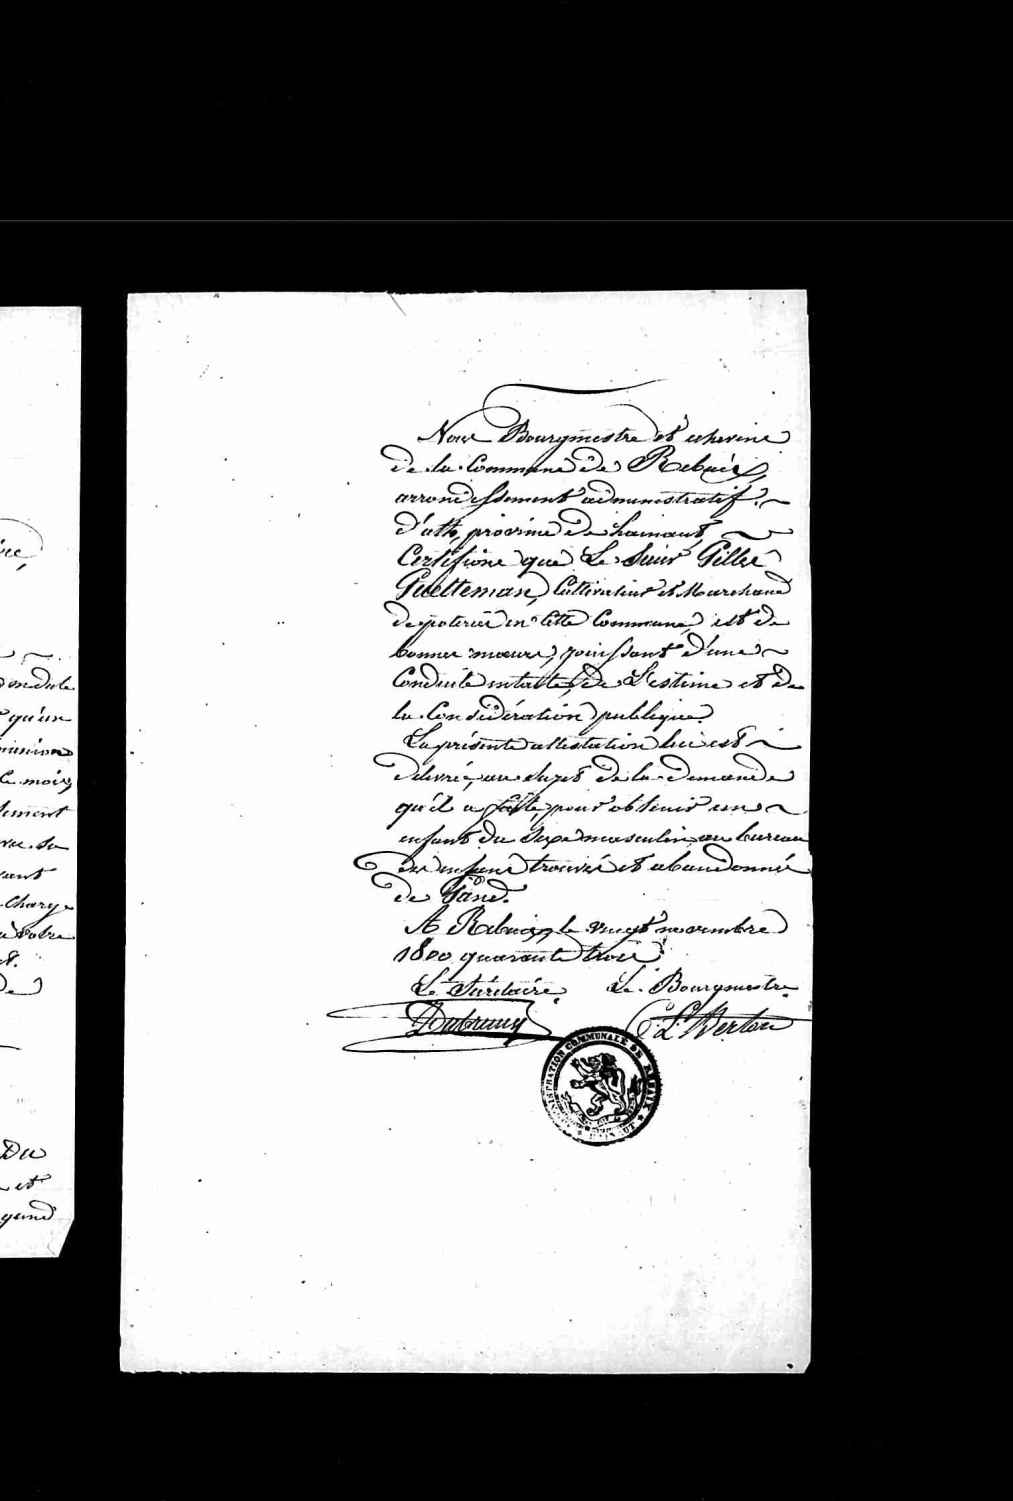 Nous Bourgmestre et echevins
de la Commune de Rebaix,
arrondissement administratif
d'ath, province de hainaut,
Certifions que Le Sieur Gilles
Guelteman, Cultivateur et Marchand
de poteries en cette Commune, est de
bonnes mœurs, jouissant d'une
Conduite intacte, de L'estime et de
la Considération publique.
La présente attestation lui est
délivrée, au sujet de la demande
qu'il a faite, pour obtenir un
enfant du Sexe masculin au bureau
des enfans trouvés et abandonnés
de Gand.
A Rebaix, le vingt novembre
1800 quarante trois.
Le Secrétaire. Le Bourgmestre
ADMINISTRATION COMMUNALE DE REBAIX
HAINAUT
dule
qu'un
le mois
sement
vant
charge
à votre
de
Du
et
gand